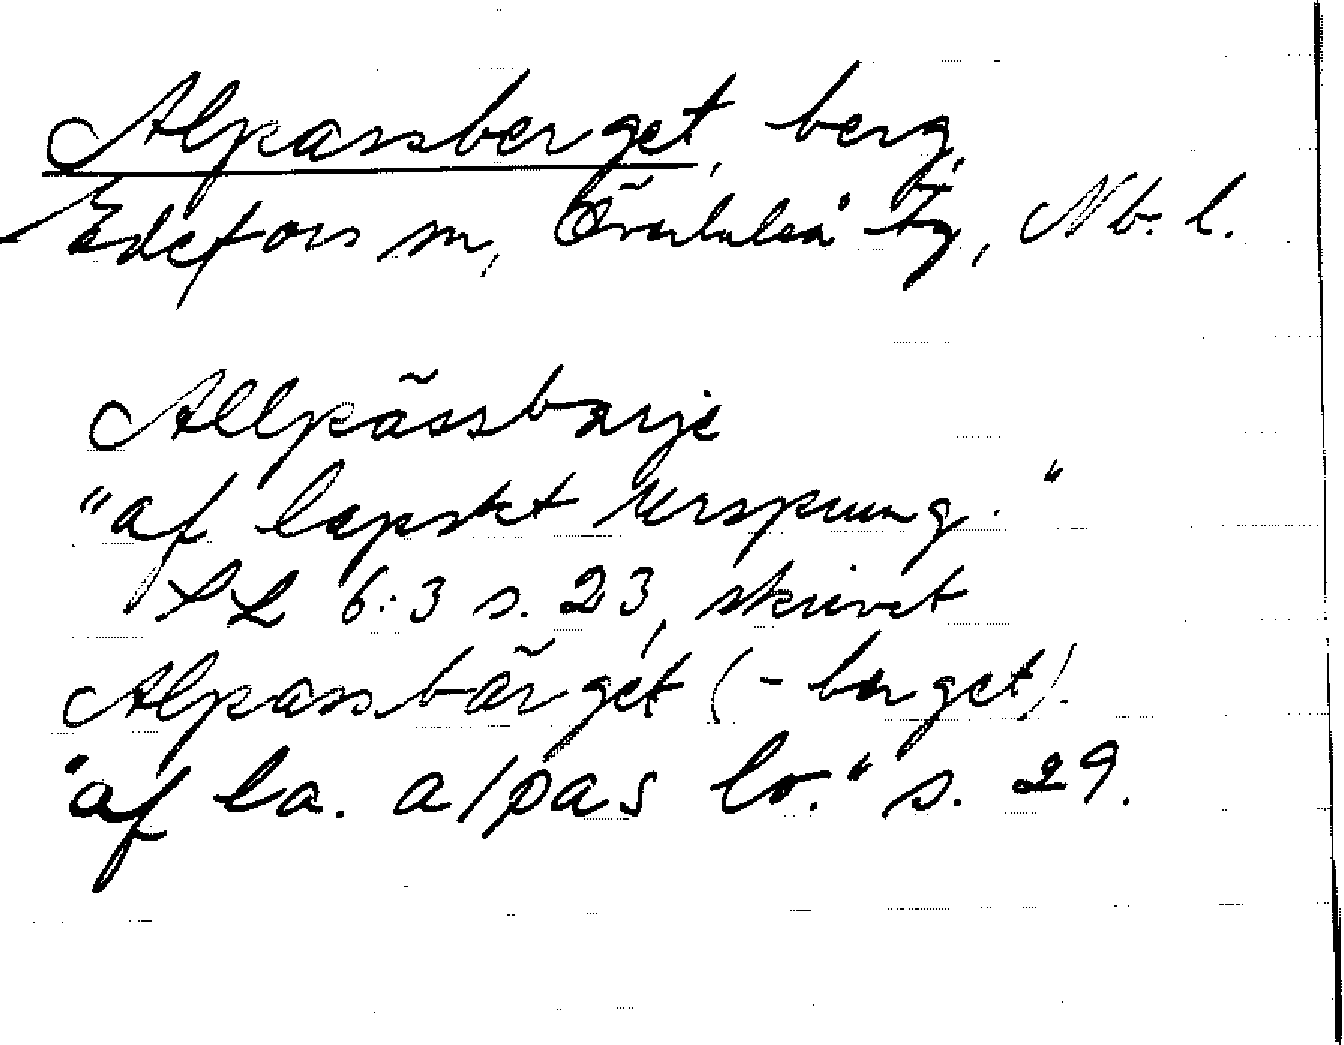 Alpassberget, berg,
Edefors sn, Överluleå tg, Nb. l.
Allpässbarje
"af lapskt ursprung."
SL 6:3 s. 23, skrivet
Alpassbärget (-berget).
"af la. alpas lo." s. 29.